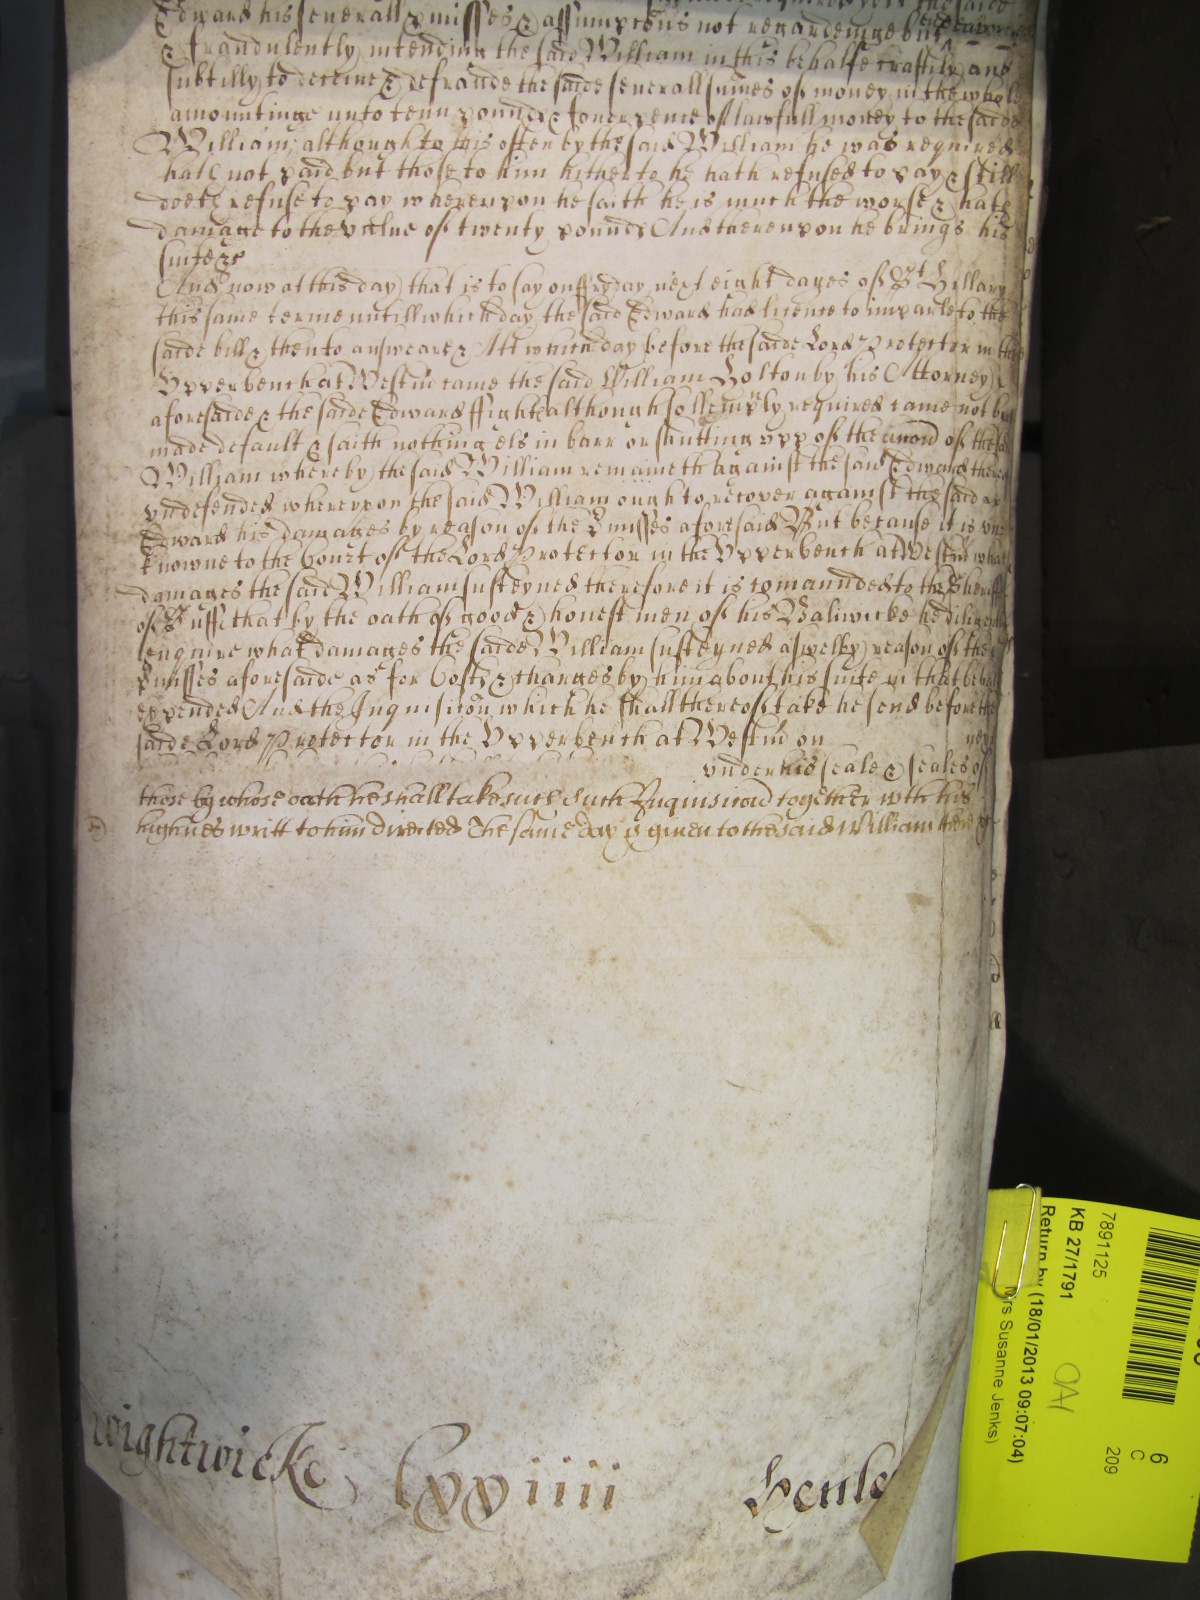 the saide
Edward his severall pmisses & assumpcõns not regardeinge but endeavoringe
& fraudulently intending the said William in this behalfe craftily and
subtilly to deceive & defraude the saide severall sumes of money in the whole
amountinge unto tenn pounds & foure pence of lawfull money to the saide
William, although to this often by the said William he was required
hath not paid but those to him hitherto he hath refused to pay & still
doeth refuse to pay whereupon he saith he is much the worse & hath
damage to the value of twenty pounds And thereupon he brings his
suite &c
And now at this day that is to say on ffryday next eight dayes of St Hillary
this same terme untill which day the said Edward had licence to imparle to the
saide bill & then to answeare & Att which day before the saide Lord Protector in the
Upper bench at Westm̃ came the said William Colton by his Attorney
aforesaide & the saide Edward ffight although sollemply required came not but
made default & saith nothing els in barr or shutting upp of the accõn of the said
William whereby the said William remaineth against the said Edward thereof
undefended whereupon the said William ought to recover against the said
Edward his damages by reason of the pmisses aforesaid But because it is un
knowne to the Court of the Lord Protector in the Upper bench at Westm̃ what
damages the said William susteyned therefore it is comaunded to the Sheriffe
of Suff that by the oath of good & honest men of his Baliwicke he diligently
enquire what damages the saide William susteyned aswell by reason of the
pmisses aforesaide as for Costs & charges by him about his suite in that behalf
expended And the Inquisicõn which he shall thereof take he send before the
saide Lord Protector in the Upper bench at Westm̃ on next
under his seale & seales of
those by whose oath he shall take such such Inquisicõn together with his
highnes writt to him directed The same day is given to the said William there &c
wightwicke lxxiiii Henle
7891125
KB 27/1791
Return by (18/01/2013 09:07:04)
Mrs Susanne Jenks)
OA1
6
C
209